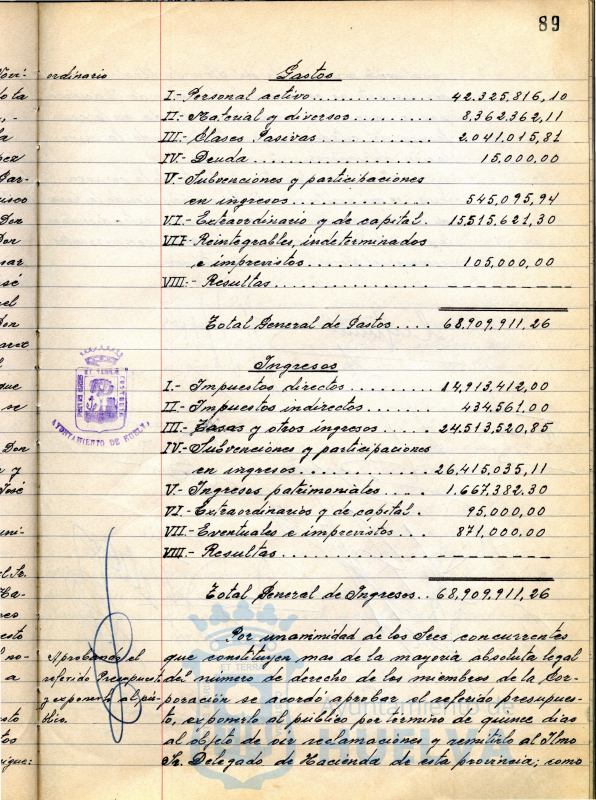 89
ordinario
Gastos
I.- Personal activo............... 42.325,816,10
II.- Material y diversos......... 8,362,362,11
III.- Clases Pasivas............ 2,041,015,81
IV.- Deuda.................... 15,000,00
V.- Subvenciones y participaciones
en ingresos............... 545,095,94
VI.- Extraordinario y de capital. 15,515,621,30
VII.- Reintegrables, indeterminados
e imprevistos............. 105,000,00
VIII.- Resultas................ — — — — — —
Total General de Gastos.... 68,909,911,26
Ingresos
I.- Impuestos directos......... 14,913,412,00
II.- Impuestos indirectos...... 434,561,00
III.- Tasas y otros ingresos.... 24.513,520,85
IV.- Subvenciones y participaciones
en ingresos............... 26,415,035,11
V.- Ingresos patrimoniales.... 1.667,382,30
VI.- Extraordinarios y de capital. 95,000,00
VII.- Eventuales e imprevistos... 871,000,00
VIII.- Resultas................ — — — — — —
Total General de Ingresos.. 68,909,911,26
AYUNTAMIENTO DE HUELVA
Por unanimidad de los Sres concurrentes
que constituyen mas de la mayoria absoluta legal
del número de derecho de los miembros de la Cor-
poración se acordó aprobar el referido presupues-
to, exponerlo al público por término de quince dias
al objeto de oir reclamaciones y remitirlo al Ilmo
Sr. Delegado de Hacienda de esta provincia; como
Aprobando el
referido Presupuesto
y exponerlo al pú-
blico.
Ayuntamiento de
HUELVA